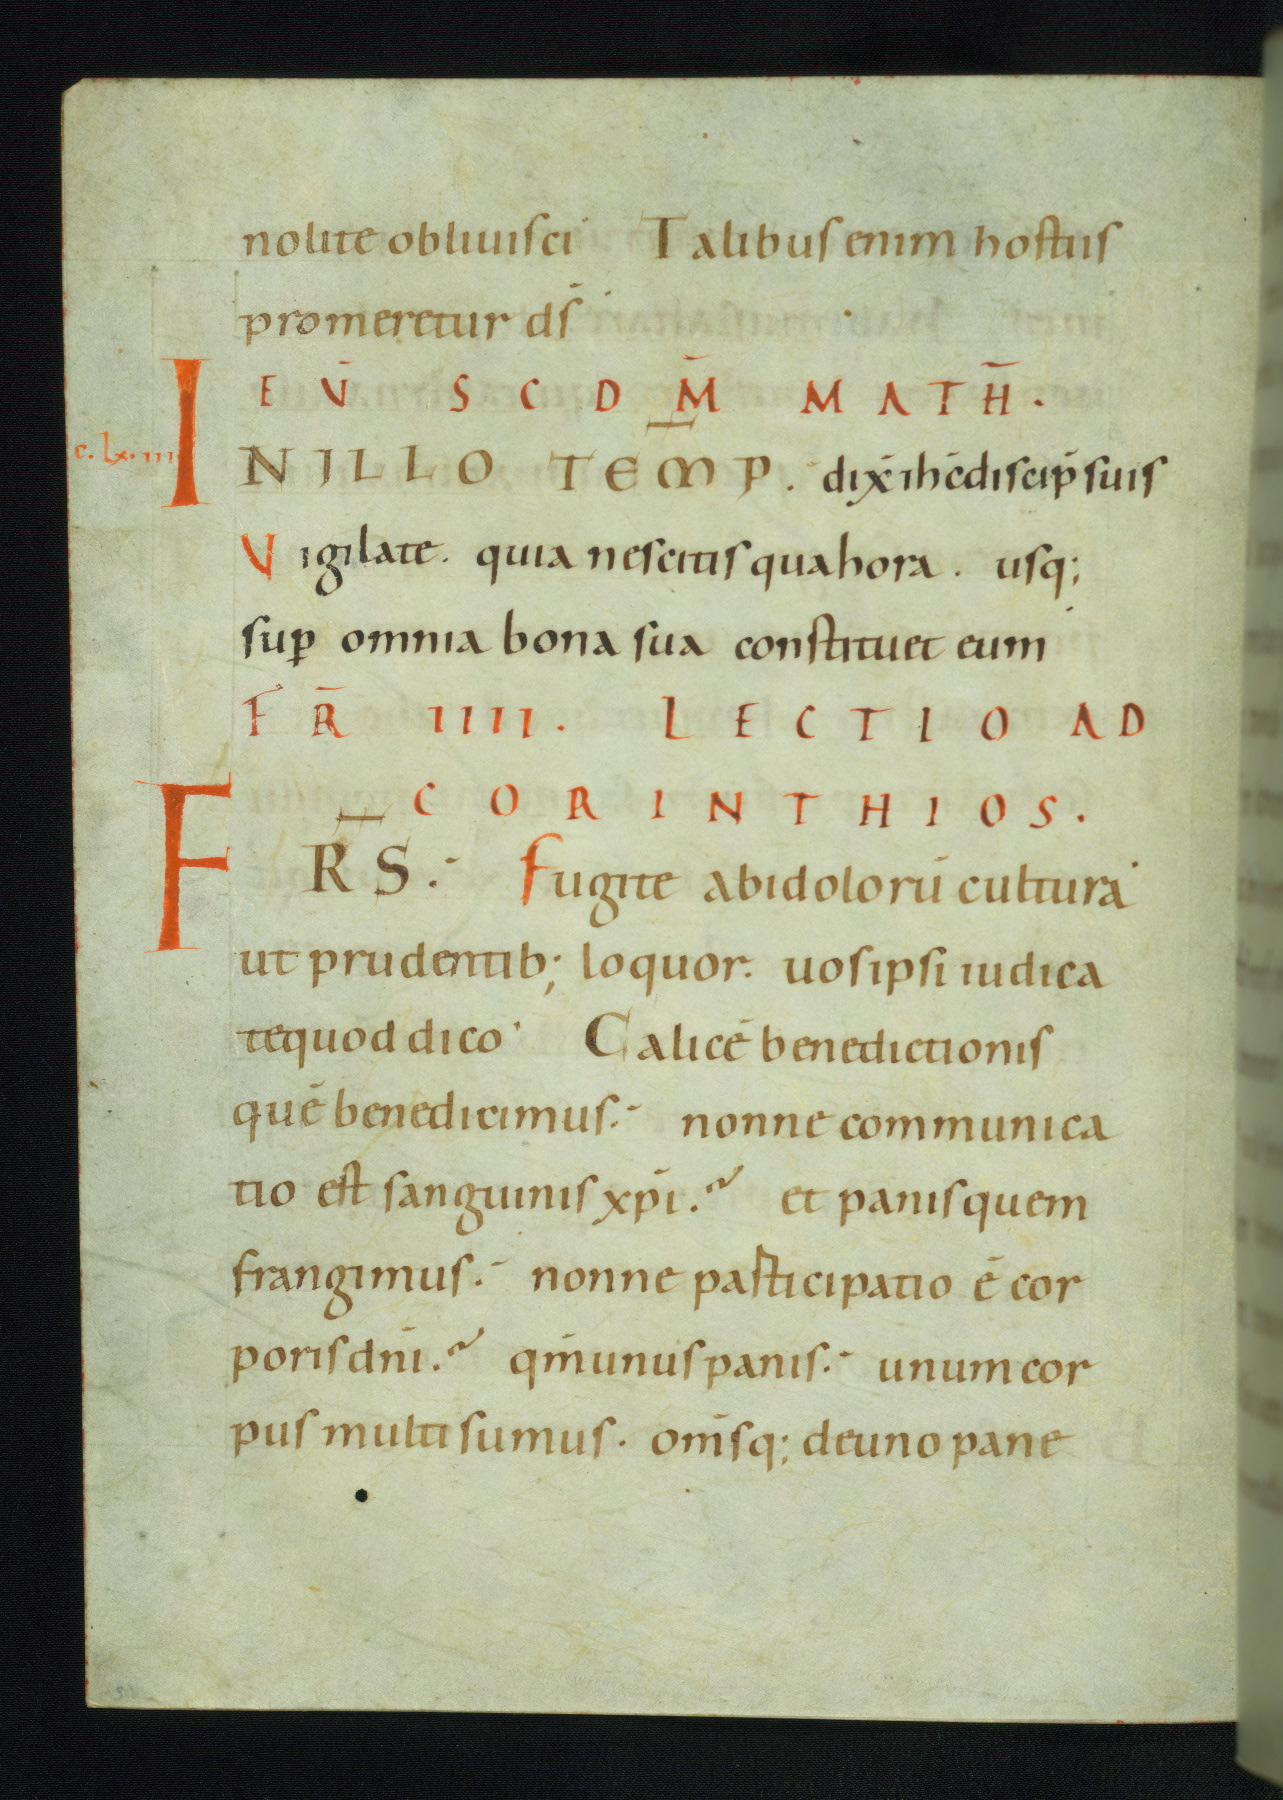 nolite obliuisci Talibus enim hostiis
promeretur ds̄
EV̄ SCDM̄ MATH̄.
c. lx. iiii
INILLO TEM̄P. dix̄ ihc̄ discip̄ suis
Vigilate. quia nescitis qua hora. usq;
sup̄ omnia bona sua constituet eum
FR̄ IIII. LECTIO AD
CORINTHIOS.
FR̄S. Fugite ab idolorū cultura
ut prudentib; loquor. uos ipsi iudica
te quod dico Calicē benedictionis
quē benedicimus. nonne communica
tio est sanguinis xp̄i. et panis quem
frangimus. nonne pasticipatio ē cor
poris dn̄i. qm̄ unus panis. unum cor
pus multi sumus. om̄sq; de uno pane